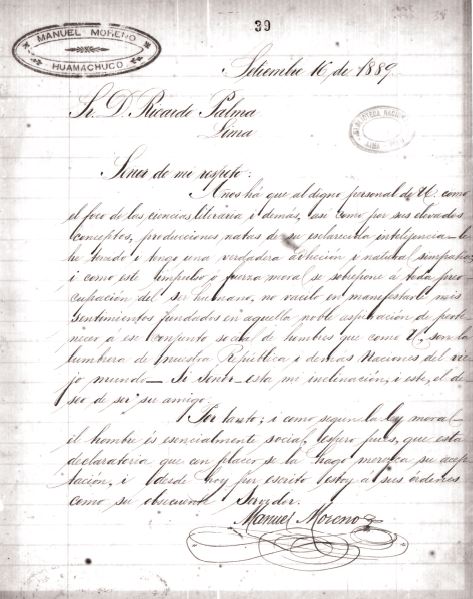 39
MANUEL MORENO
HUAMACHUCO
Setiembre 16 de 1889
Sr. D. Ricardo Palma
Lima
Señor de mi respeto:
Años há que al digno personal de U. como
el foco de las ciencias literaria i demás, así como por sus elevados
conceptos, producciones natas de su esclarecida inteligencia le
he tenido i tengo una verdadera adhecion i natural simpatia;
i como este impulso o fuerza moral se sobrepone á toda preo-
cupación del ser humano, no vacilo en manifestarle mis
sentimientos fundados en aquella noble aspiracion de perte-
necer á ese conjunto social de hombres que como U. son la
lumbrera de nuestra República i demas Naciones del vie-
jo mundo_ Si Señor esta mi inclinación, i este, el de-
seo de ser su amigo.
Por tanto; i como segun la ley moral
el hombre és esencialmente social, espero pues, que esta
declaratoria que con placer se la hago meresca su acep-
tación, i desde hoy por escrito estoy á sus órdenes
como su obsecuente Servidor.
Manuel Moreno
BIBLIOTECA NACIONAL
LIMA